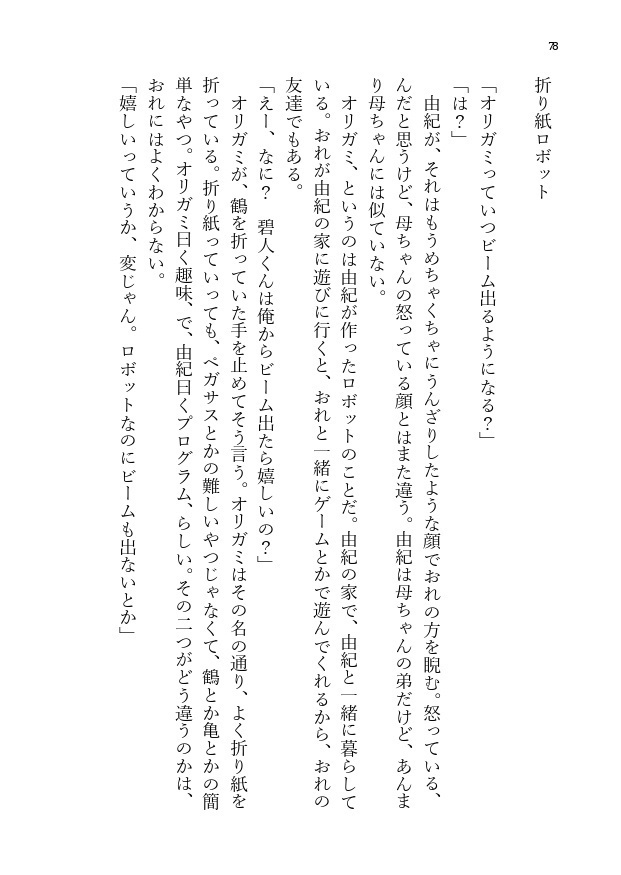 78
折り紙ロボット
「オリガミっていつビーム出るようになる？」
「は？」
　由紀が、それはもうめちゃくちゃにうんざりしたような顔でおれの方を睨む。怒っている、
んだと思うけど、母ちゃんの怒っている顔とはまた違う。由紀は母ちゃんの弟だけど、あんま
り母ちゃんには似ていない。
　オリガミ、というのは由紀が作ったロボットのことだ。由紀の家で、由紀と一緒に暮らして
いる。おれが由紀の家に遊びに行くと、おれと一緒にゲームとかで遊んでくれるから、おれの
友達でもある。
「えー、なに？　碧人くんは俺からビーム出たら嬉しいの？」
　オリガミが、鶴を折っていた手を止めてそう言う。オリガミはその名の通り、よく折り紙を
折っている。折り紙っていっても、ペガサスとかの難しいやつじゃなくて、鶴とか亀とかの簡
単なやつ。オリガミ曰く趣味、で、由紀曰くプログラム、らしい。その二つがどう違うのかは、
おれにはよくわからない。
「嬉しいっていうか、変じゃん。ロボットなのにビームも出ないとか」